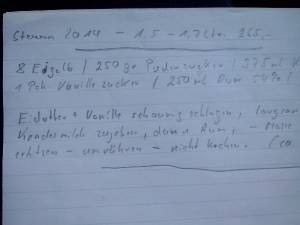 2014 - 1,5 - 1,7 Ltr. 265,-
8 Eigelb / 250 gr Puderzucker / 375 ml
1 Pck. Vanillezucker / 250 ml Rum 54%
Eidotter + Vanille schaumig schlagen, langsam
Kondesmilch zugeben, dann Rum, -
erhitzen - umrühren - nicht kochen. (ca